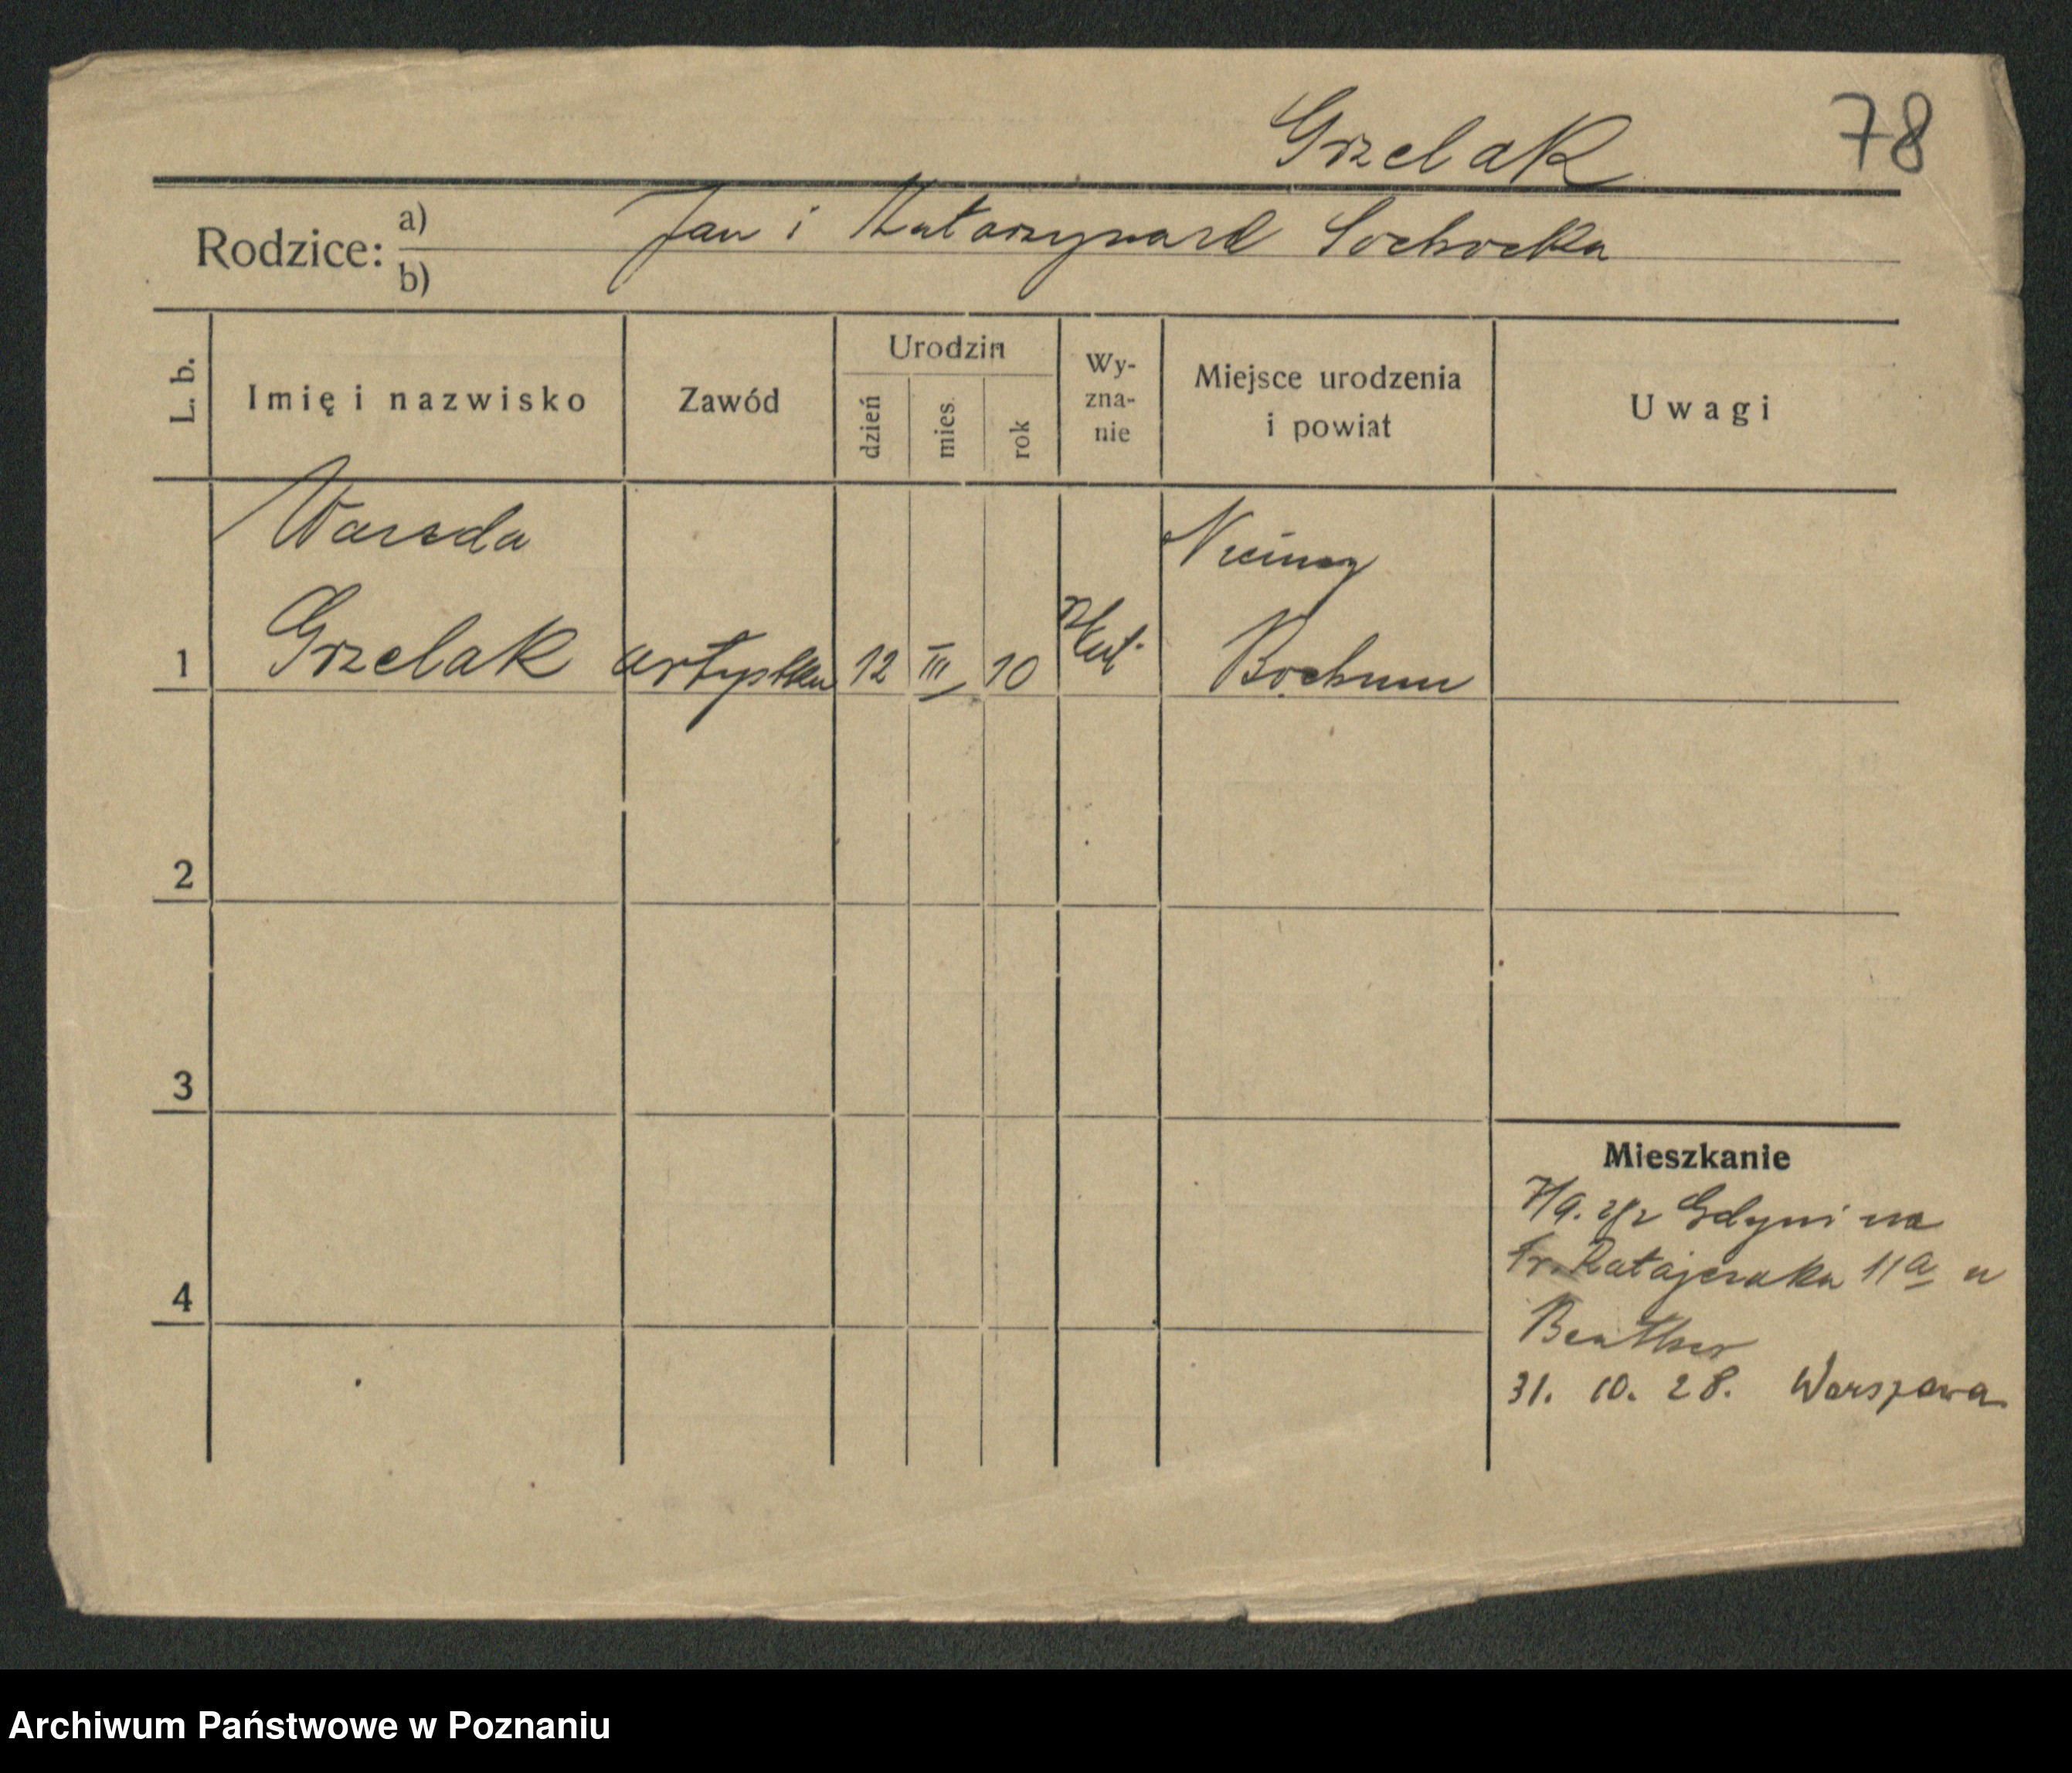 Grzelak 78
Rodzice: a) Jan i Katarzyna Sochocka
b)
L. b. Imię i nazwisko Zawód Urodzin dzień mies. rok Wy-zna-nie Miejsce urodzenia i powiat Uwagi
Wanda Niemcy
1 Grzelak artystka 12 III 10 Kat. Bochum
2
3
Mieszkanie
7/9. 28 z Gdyni na
Fr. Ratajczaka 11a u
4
31. 10. 28. Warszawa
Archiwum Państwowe w Poznaniu